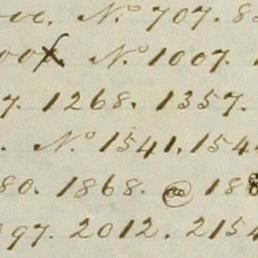 oc. N.º 707. 8
00f. N.º 1007.
7. 1268. 1357.
. N.º 1541. 154
80. 1868. 18
97. 2012. 2154